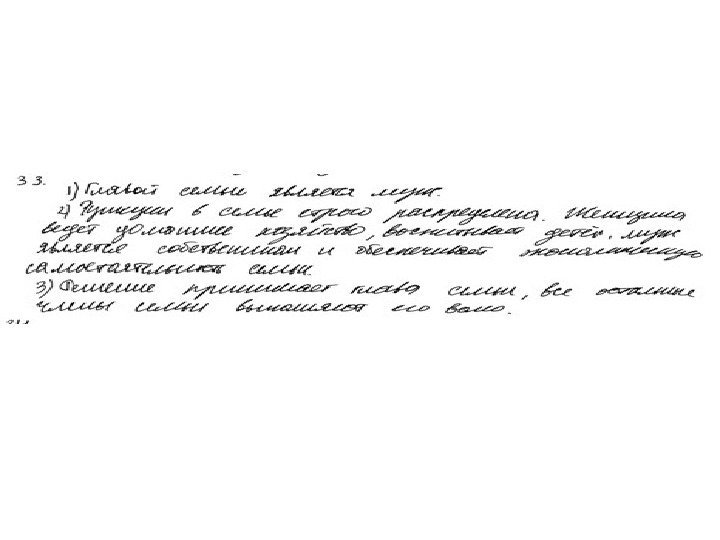 33. 1) Главой семьи является муж.
2) Функции в семье строго распределена. Женщина
ведет домашнее хозяйство, воспитывает детей, муж
является собственником и обеспечивает экономическую
самостоятельность семьи.
3) Решение принимает глава семьи, все остальные
члены семьи выполняют его волю.